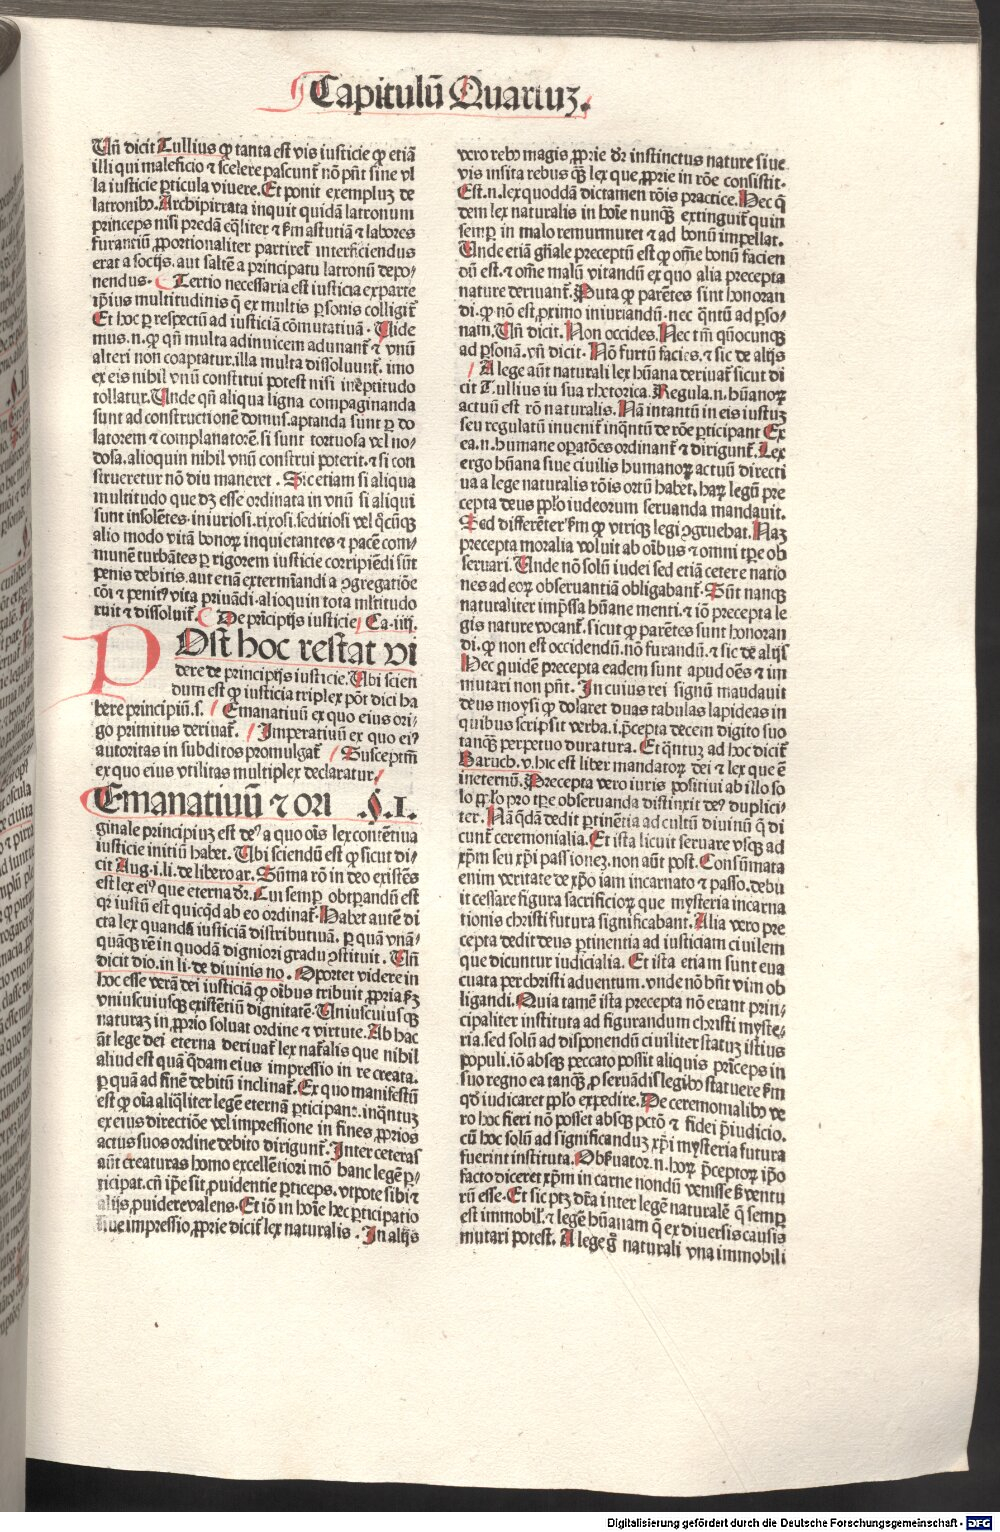 Capitulū Quartuꝫ.
Uñ dicit Tullius ꝙ tanta est vis iusticie ꝙ etiã
illi qui maleficio ⁊ scelere pascunt̃ nõ pñt sine vl
la iusticie ꝑticula viuere. Et ponit exempluꝫ de
latronibꝰ. Archipirrata inquit quidã latronum
princeps nisi predã eq̃liter ⁊ ẜm astutiã ⁊ labores
furantiũ ꝓportionaliter partiret̃ interficiendus
erat a socijs. aut saltẽ a principatu latronũ depo⸗
nendus. Tertio necessaria est iusticia ex parte
ip̃ius multitudinis q̃ ex multis ꝑsonis colligit̃
Et hoc ꝑ respectũ ad iusticiã cõmutatiuã. Uide
mus. n. ꝙ qñ multa adinuicem adunant̃ ⁊ vnũ
alteri non coaptatur. illa multa dissoluunt̃. imo
ex eis nihil vnũ constitui potest nisi inẽptitudo
tollatur. Unde qñ aliqua ligna compaginanda
sunt ad constructionẽ domus. aptanda sunt ꝑ do
latorem ⁊ complanatorẽ. si sunt tortuosa vel no⸗
dosa. alioquin nihil vnũ construi poterit. ⁊ si con
strueretur nõ diu maneret. Sic etiam si aliqua
multitudo que dꝫ esse ordinata in vnũ si aliqui
sunt insolẽtes. iniuriosi. rixosi. seditiosi vel q̃cũqꝫ
alio modo vitã bonoꝝ inquietantes ⁊ pacẽ com⸗
munẽ turbãtes ꝑ rigorem iusticie corripiẽdi sũt
penis debitis. aut etiã exterminãdi a ꝯgregatiõe
cõi ⁊ penitꝰ vita priuãdi. alioquin tota mltitudo
ruit ⁊ dissoluit̃. De pr̃icipijs iusticie Ca. iiij.
POst hoc restat vi
dere de principijs iusticie. Ubi scien
dum est ꝙ iusticia triplex põt dici ha
bere principiũ. s. Emanatiuũ ex quo eius ori⸗
go primitus deriuat̃. Imperatiuũ ex quo eiꝰ
autoritas in subditos promulgat̃ Susceptiũ
ex quo eius vtilitas multiplex declaratur.
Emanatiuũ ⁊ ori .§.I.
ginale principiuꝫ est deꝰ a quo oĩs lex contẽtiua
iusticie initiũ habet. Ubi sciendũ est ꝙ sicut di⸗
cit Aug. i. li. de libero ar. Sũma rõ in deo existẽs
est lex eiꝰ que eterna dr̃. Cui semꝑ obtꝑandũ est
qꝛ iustũ est quicq̃d ab eo ordinat̃. Habet autẽ di
cta lex quandã iusticiã distributiuã. ꝑ quã vnã⸗
quãqꝫ rẽ in quodã digniori gradu ꝯstituit. Uñ
dicit dio. in li. de diuinis no. Oportet videre in
hoc esse verã dei iusticiã ꝙ oĩbus tribuit ꝓpria ẜꝫ
vniuscuiusqꝫ existẽtiũ dignitatẽ. Uniuscuiusqꝫ
naturaꝫ in ꝓprio soluat ordine ⁊ virtute. Ab hac
aũt lege dei eterna deriuat̃ lex nat̃alis que nihil
aliud est quã q̃dam eius impressio in re creata.
ꝑ quã ad finẽ debitũ inclinat̃. Ex quo manifestũ
est ꝙ oĩa aliq̃liter legẽ eternã ꝑticipant. inq̃ntuꝫ
ex eius directiõe vel impressione in fines ꝓprios
actus suos ordine debito dirigunt̃. Inter ceteras
aũt creaturas homo excellẽtiori mõ hanc legẽ ꝑ⸗
ticipat. cũ ip̃e sit ꝓuidentie ꝑticeps. vtpote sibi ⁊
alijs ꝓuidere valens. Et iõ in hoĩe hec ꝑticipatio
siue impressio ꝓprie dicit̃ lex naturalis. In alijs
vero rebꝰ magis ꝓprie dr̃ instinctus nature siue
vis insita rebus q̃ꝫ lex que ꝓprie in rõe consistit.
Est. n. lex quoddã dictamen rõis practice. Nec q̃
dem lex naturalis in hoĩe nunqꝫ extinguit̃ quin
semꝑ in malo remurmuret ⁊ ad bonũ impellat.
Unde etiã gñale preceptũ est ꝙ om̃e bonũ facien
dũ est. ⁊ om̃e malũ vitandũ ex quo alia precepta
nature deriuant̃. Puta ꝙ parẽtes sint honoran
di. ꝙ nõ est ꝓximo iniuriandũ. nec q̃ntũ ad ꝑso⸗
nam. Uñ dicit. Non occides. Nec tm̃ qñocunqꝫ
ad ꝑsonã. vñ dicit. Nõ furtũ facies. ⁊ sic de alijs
A lege aũt naturali lex hũana deriuat̃ sicut di
cit Tullius in sua rhetorica. Regula. n. hũanoꝝ
actuũ est rõ naturalis. Nã intantũ in eis iustuꝫ
seu regulatũ inuenit̃ inq̃ntũ de rõe ꝑticipant Ex
ea. n. humane oꝑatões ordinant̃ ⁊ dirigunt̃. Lex
ergo hũana siue ciuilis humanoꝝ actuũ directi
ua a lege naturalis rõis ortũ habet. haꝝ legũ pre
cepta deus pp̃lo iudeorum seruanda mandauit.
Sed differẽter ẜm ꝙ vtriqꝫ legi ꝯgruebat. Naꝫ
precepta moralia voluit ab oĩbus ⁊ omni tp̃e ob
seruari. Unde nõ solũ iudei sed etiã cetere natio
nes ad eoꝝ obseruantiã obligabant̃. Sũt nanqꝫ
naturaliter imp̃ssa hũane menti. ⁊ iõ precepta le
gis nature vocant̃. sicut ꝙ parẽtes sunt honoran
di. ꝙ non est occidendũ. nõ furandũ. ⁊ sic de alijs
Hec quidẽ precepta eadem sunt apud oẽs ⁊ im
mutari non pñt. In cuius rei signũ mandauit
deus moysi ꝙ dolaret duas tabulas lapideas in
quibus scripsit verba. i. p̃cepta decem digito suo
tanqꝫ perpetuo duratura. Et q̃ntuꝫ ad hoc dicit̃
Baruch. v. hic est liber mandatoꝝ dei ⁊ lex que ẽ
in eternũ. Precepta vero iuris positiui ab illo so
lo pp̃lo pro tp̃e obseruanda distinxit deꝰ duplici⸗
ter. Nã q̃dã dedit ꝑtinẽtia ad cultũ diuinũ q̃ di
cunt̃ ceremonialia. Et ista licuit seruare vsqꝫ ad
xp̃m seu xp̃i passionez. non aũt post. Consũmata
enim veritate de xp̃o iam incarnato ⁊ passo. debu
it cessare figura sacrificioꝝ que mysteria incarna
tionis christi futura significabant. Alia vero pre
cepta dedit deus ꝑtinentia ad iusticiam ciuilem
que dicuntur iudicialia. Et ista etiam sunt eua
cuata per christi aduentum. vnde nõ hñt vim ob
ligandi. Quia tamẽ ista precepta nõ erant prin⸗
cipaliter instituta ad figurandum christi myste⸗
ria. sed solũ ad disponendũ ciuiliter statuꝫ istius
populi. iõ absqꝫ peccato possit aliquis prĩceps in
suo regno ea tanqꝫ ꝓ seruãdis legibꝰ statuere ẜm
qď iudicaret pp̃lo expedire. De ceremonialibꝰ ve
ro hoc fieri nõ posset absqꝫ pctõ ⁊ fidei p̃iudicio.
cũ hoc solũ ad significanduꝫ xp̃i mysteria futura
fuerint instituta. Obẜuator. n. hoꝝ p̃ceptoꝝ ip̃o
facto diceret xp̃m in carne nondũ venisse ẜꝫ ventu
rũ esse. Et sic ptꝫ dr̃a inter legẽ naturalẽ q̃ semꝑ
est immobil̃. ⁊ legẽ hũanam q̃ ex diuersis causis
mutari potest. A lege gͦ naturali vna immobili
Digitalisierung gefördert durch die Deutsche Forschungsgemeinschaft - DFG